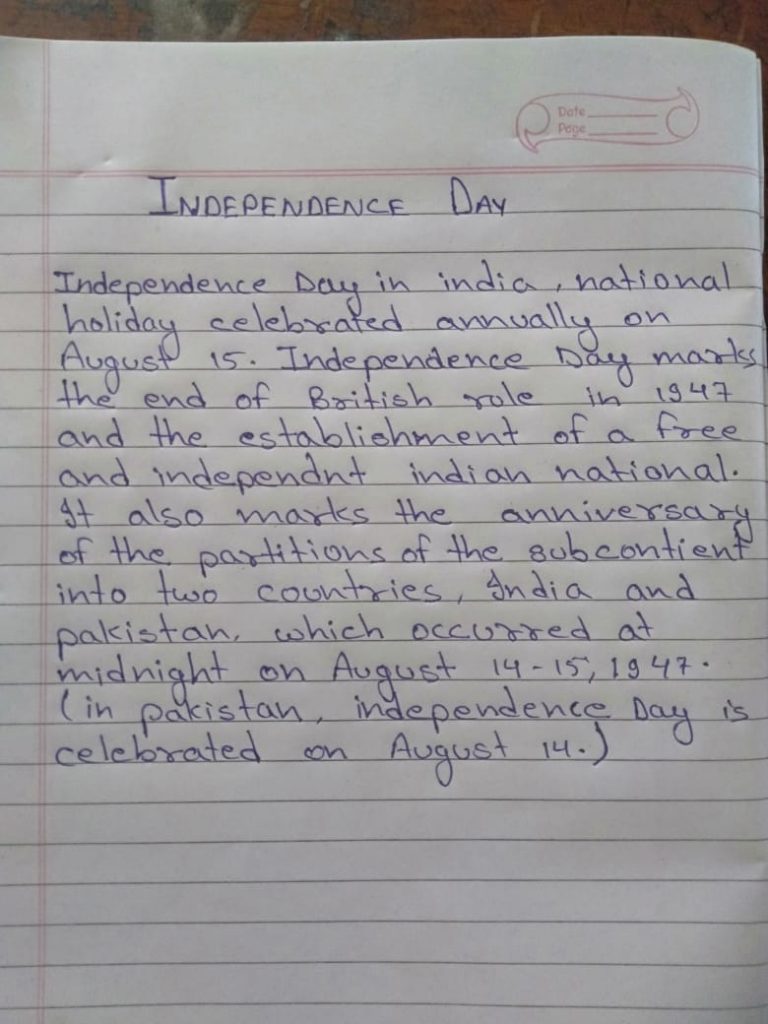 Date
Page
INDEPENDENCE DAY
Independence Day in india, national
holiday celebrated annually on
August 15. Independence Day marks
the end of British role in 1947
and the establishment of a free
and independnt indian national.
It also marks the anniversary
of the partitions of the subcontient
into two countries, India and
pakistan, which occurred at
midnight on August 14-15, 1947.
(in pakistan, independence Day is
celebrated on August 14.)